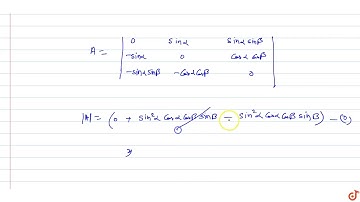 0 sinα sinα sinβ
A = -sinα 0 cosα cosβ
-sinα sinβ -cosα cosβ 0
|A| = (0 + sin²α cosα cosβ sinβ - sin²α cosα cosβ sinβ) - (0)
0